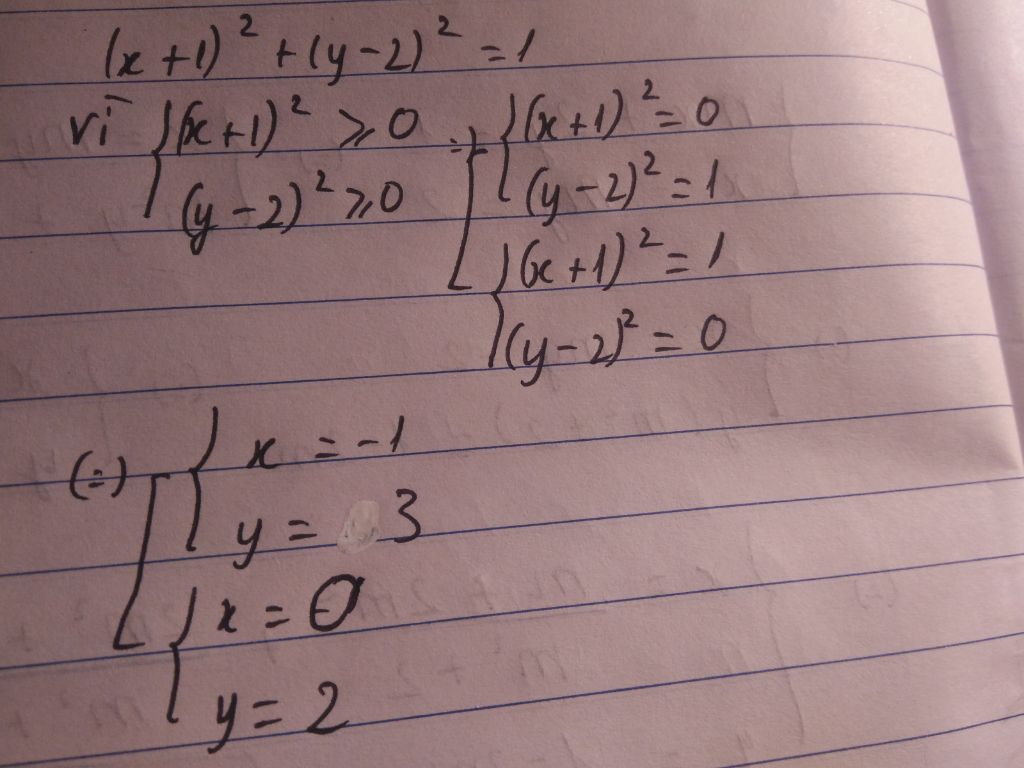 (x+1)² + (y-2)² = 1
vì { (x+1)² ⩾ 0 [ { (x+1)² = 0
(y-2)² ⩾ 0 (y-2)² = 1
{ (x+1)² = 1
(y-2)² = 0
(=) [ { x = -1
y = 3
{ x = 0
y = 2